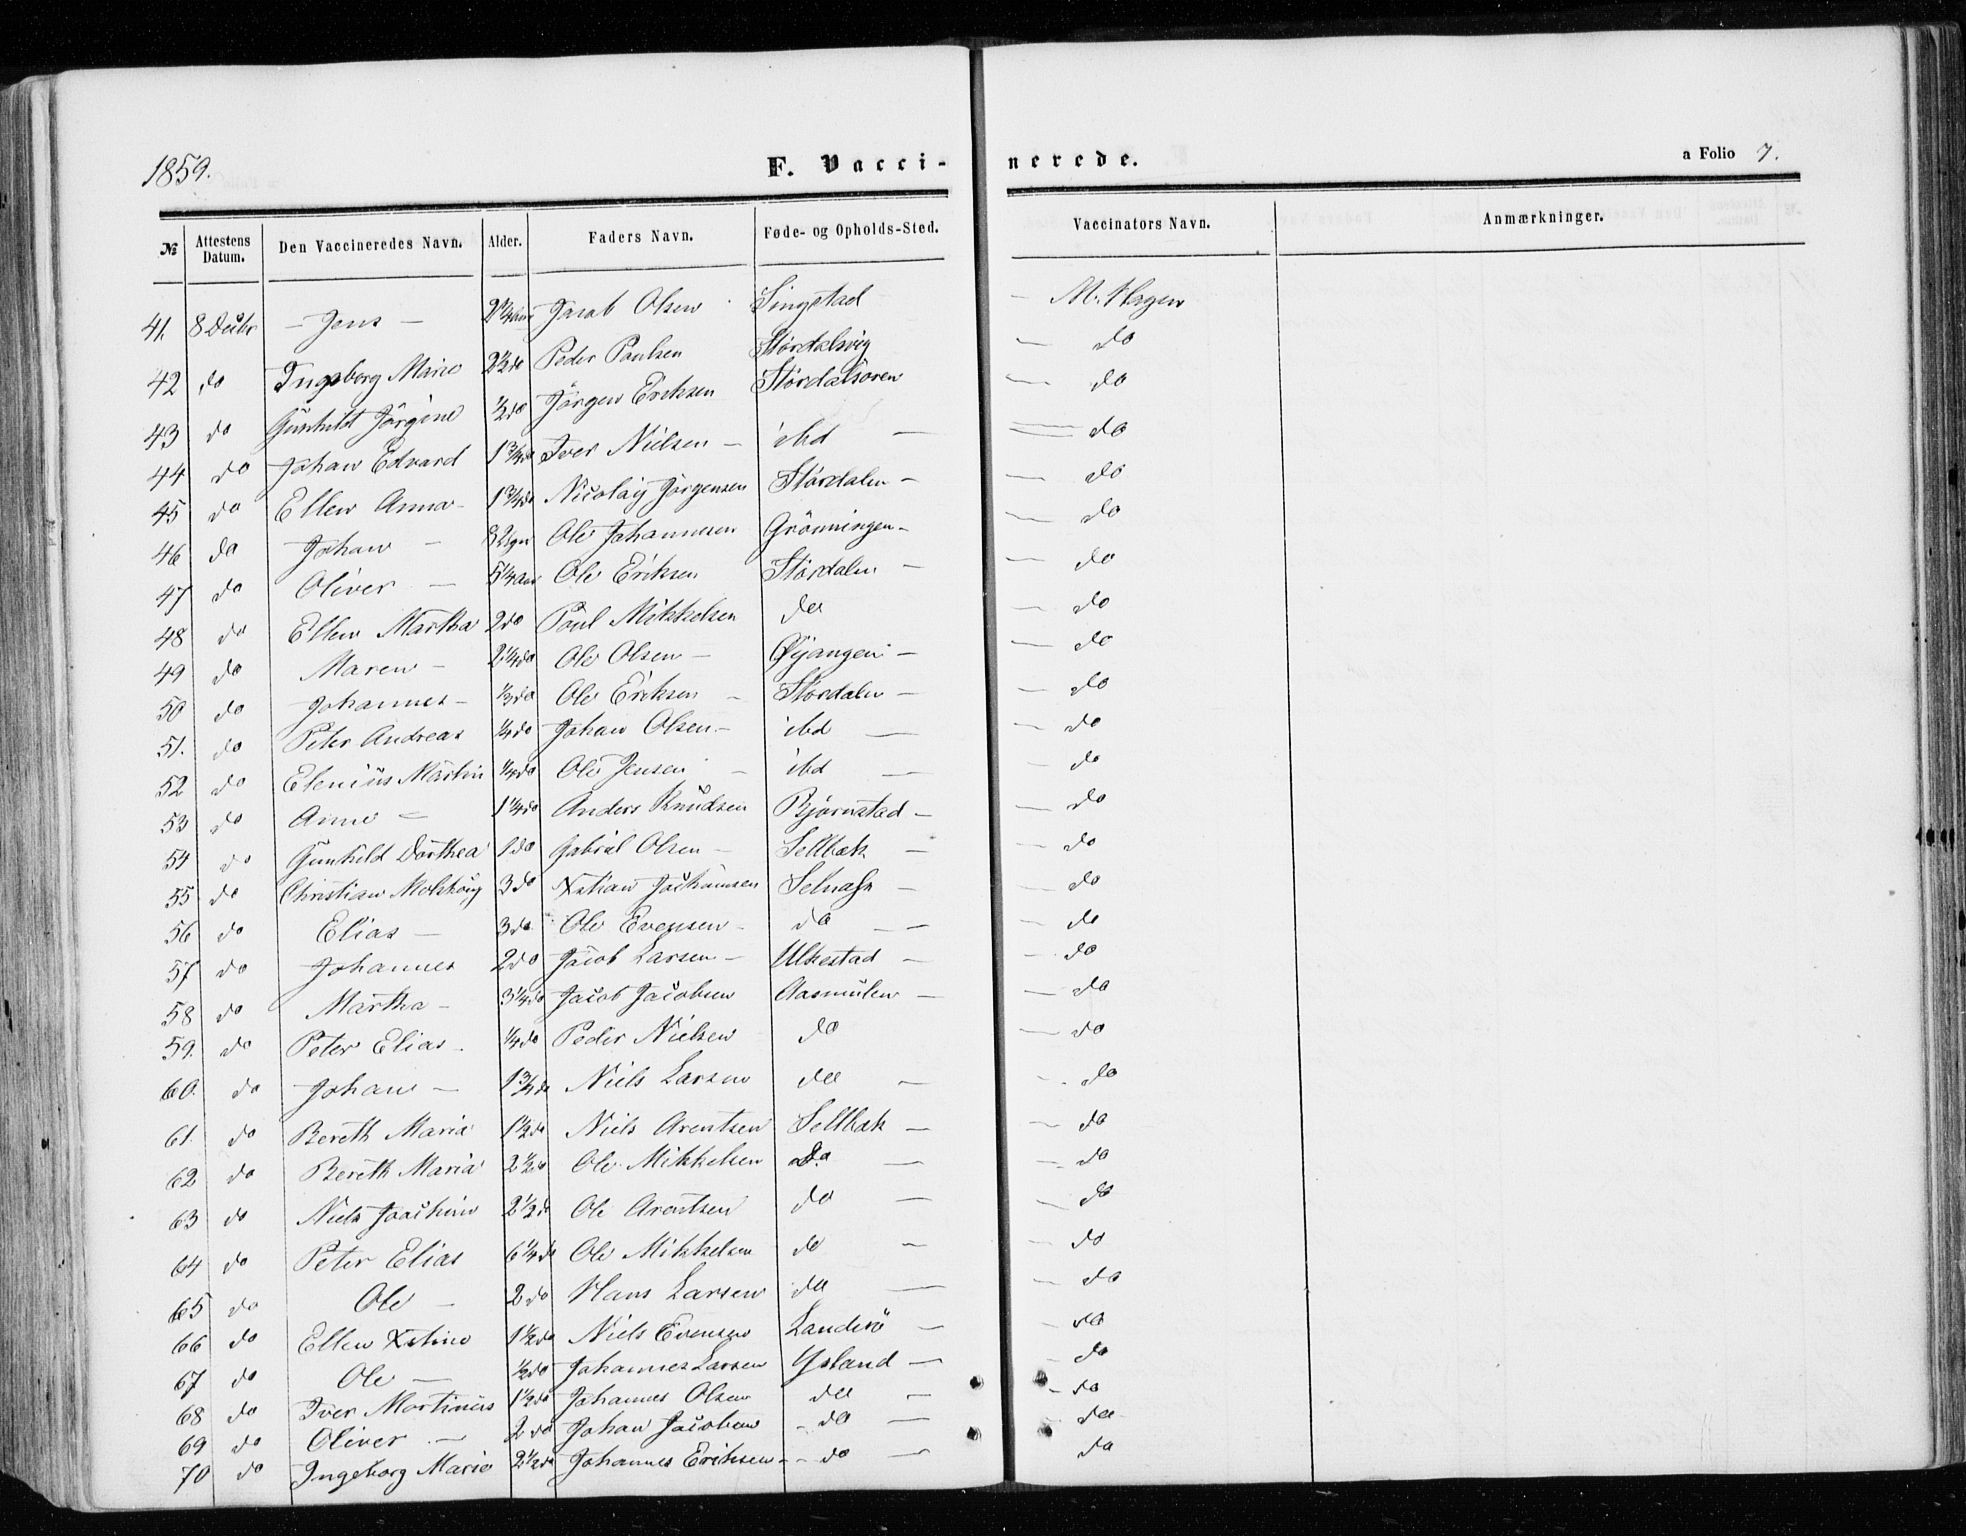 1859. F. Vacci- nerede. a Folio 7.
№ Attestens Datum. Den Vaccineredes Navn. Alder. Faders Navn. Føde- og Opholds-Sted. Vaccinators Navn. Anmærkninger.
41. 8 Decbr – Jens – 2 1/4 Aar Jacob Olsen Singstad – M. Hagen
42 do Ingeborg Marie 2 1/2 do Peder Paulsen Størdalsvig – do
43 do Gunhild Jørgine 1/2 do Jörgen Eriksen Størdalsøren – do
44 do Johan Edvard 1 3/4 do Iver Nielsen – ibd – – do
45 do Ellen Anna – 1 3/4 do Nicolay Jörgensen Størdalen – – do
46 do Johan – Ole Johannesen Grönningen – – do
47 do Oliver – 5 1/4 Aar Ole Eriksen Størdalen – – do
48 do Ellen Martha 2 do Paul Mikkelsen do – do
49 do Maren – 2 1/4 do Ole Olsen – Øyangen – – do
50 do Johannes – 1/3 do Ole Eriksen – Størdalen – – do
51. do Peter Andreas 1/4 do Johan Olsen – ibd – – do
52 do Elenius Martin 1/4 do Ole Jensen – ibd – – do
53 do Anne – 1 1/4 do Anders Knudsen Bjørnstad – – do
54 do Gunhild Dorthea 1 do Gabriel Olsen – Seltbæk – – do
55 do Christian 3 do Xstian – – do
56 do Elias – 3 do Ole Evensen – do – – – do
57 do Johannes 2 do Jacob Larsen – Ulkestad – – do
58 do Martha – 3 1/4 do Jacob Jacobsen Aasmulen – – do
59. do Peter Elias – 1/4 do Peder Nielsen do – do
60. do Johan – 1 3/4 do Niels Larsen do – – do
61. do Bereth Maria 1 1/2 do Niels Arentsen Seltbæk – – do
62 do Bereth Maria 2 1/2 do Ole Mikkelsen do – – do
63 do Niels Joachim 2 1/2 do Ole Arentsen do – – do
64 do Peter Elias 6 1/4 do Ole Mikkelsen do – – do
65 do Ole – 2 do Hans Larsen do – – do
66 do Ellen Xstine 1 1/2 do Niels Evensen Landrö – – do
67 do Ole – 1/2 do Johannes Larsen Ysland – – do
68 do Iver Martinus 1 1/2 do Johannes Olsen do – – do
69 do Oliver – 2 do Johan Jacobsen – do – do
70 do Ingeborg Marie 2 1/2 do Johannes Eriksen – – do – do